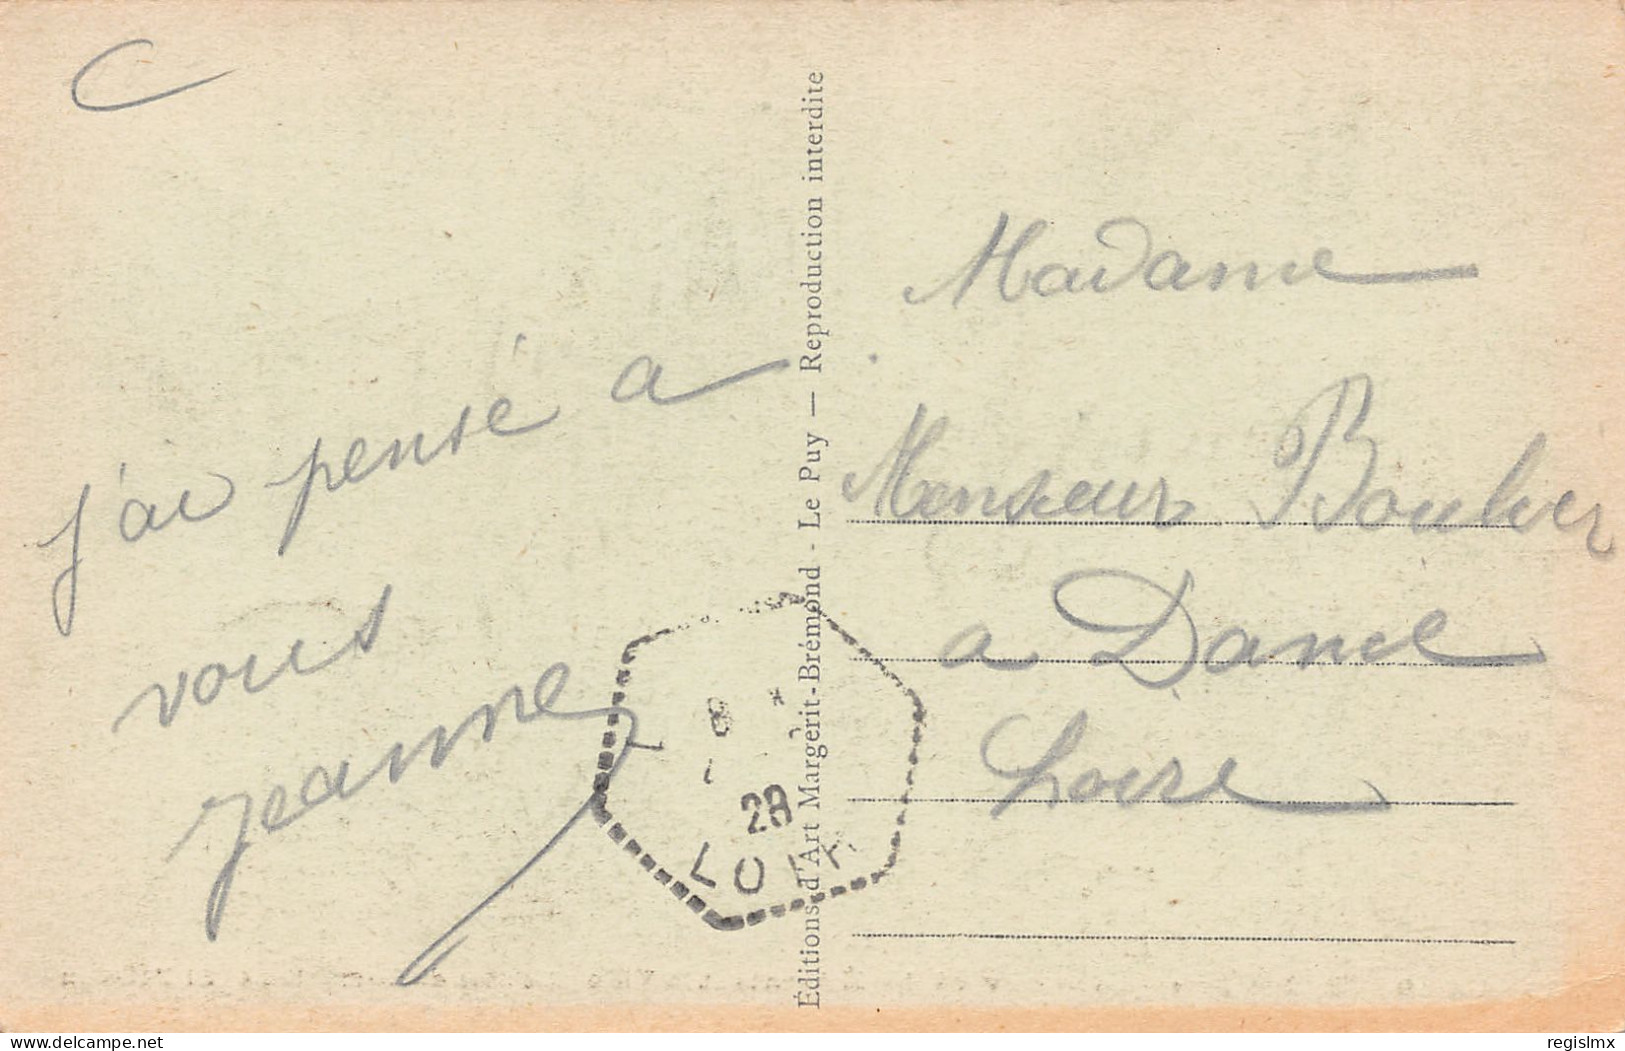 j'ai pensé à
vous
Jeanne
Éditions d'Art Margerit-Brémond - Le Puy — Reproduction interdite
28
LOIR
Madame
Monsieur
a Dancé
Loire
www.delcampe.net
regislmx